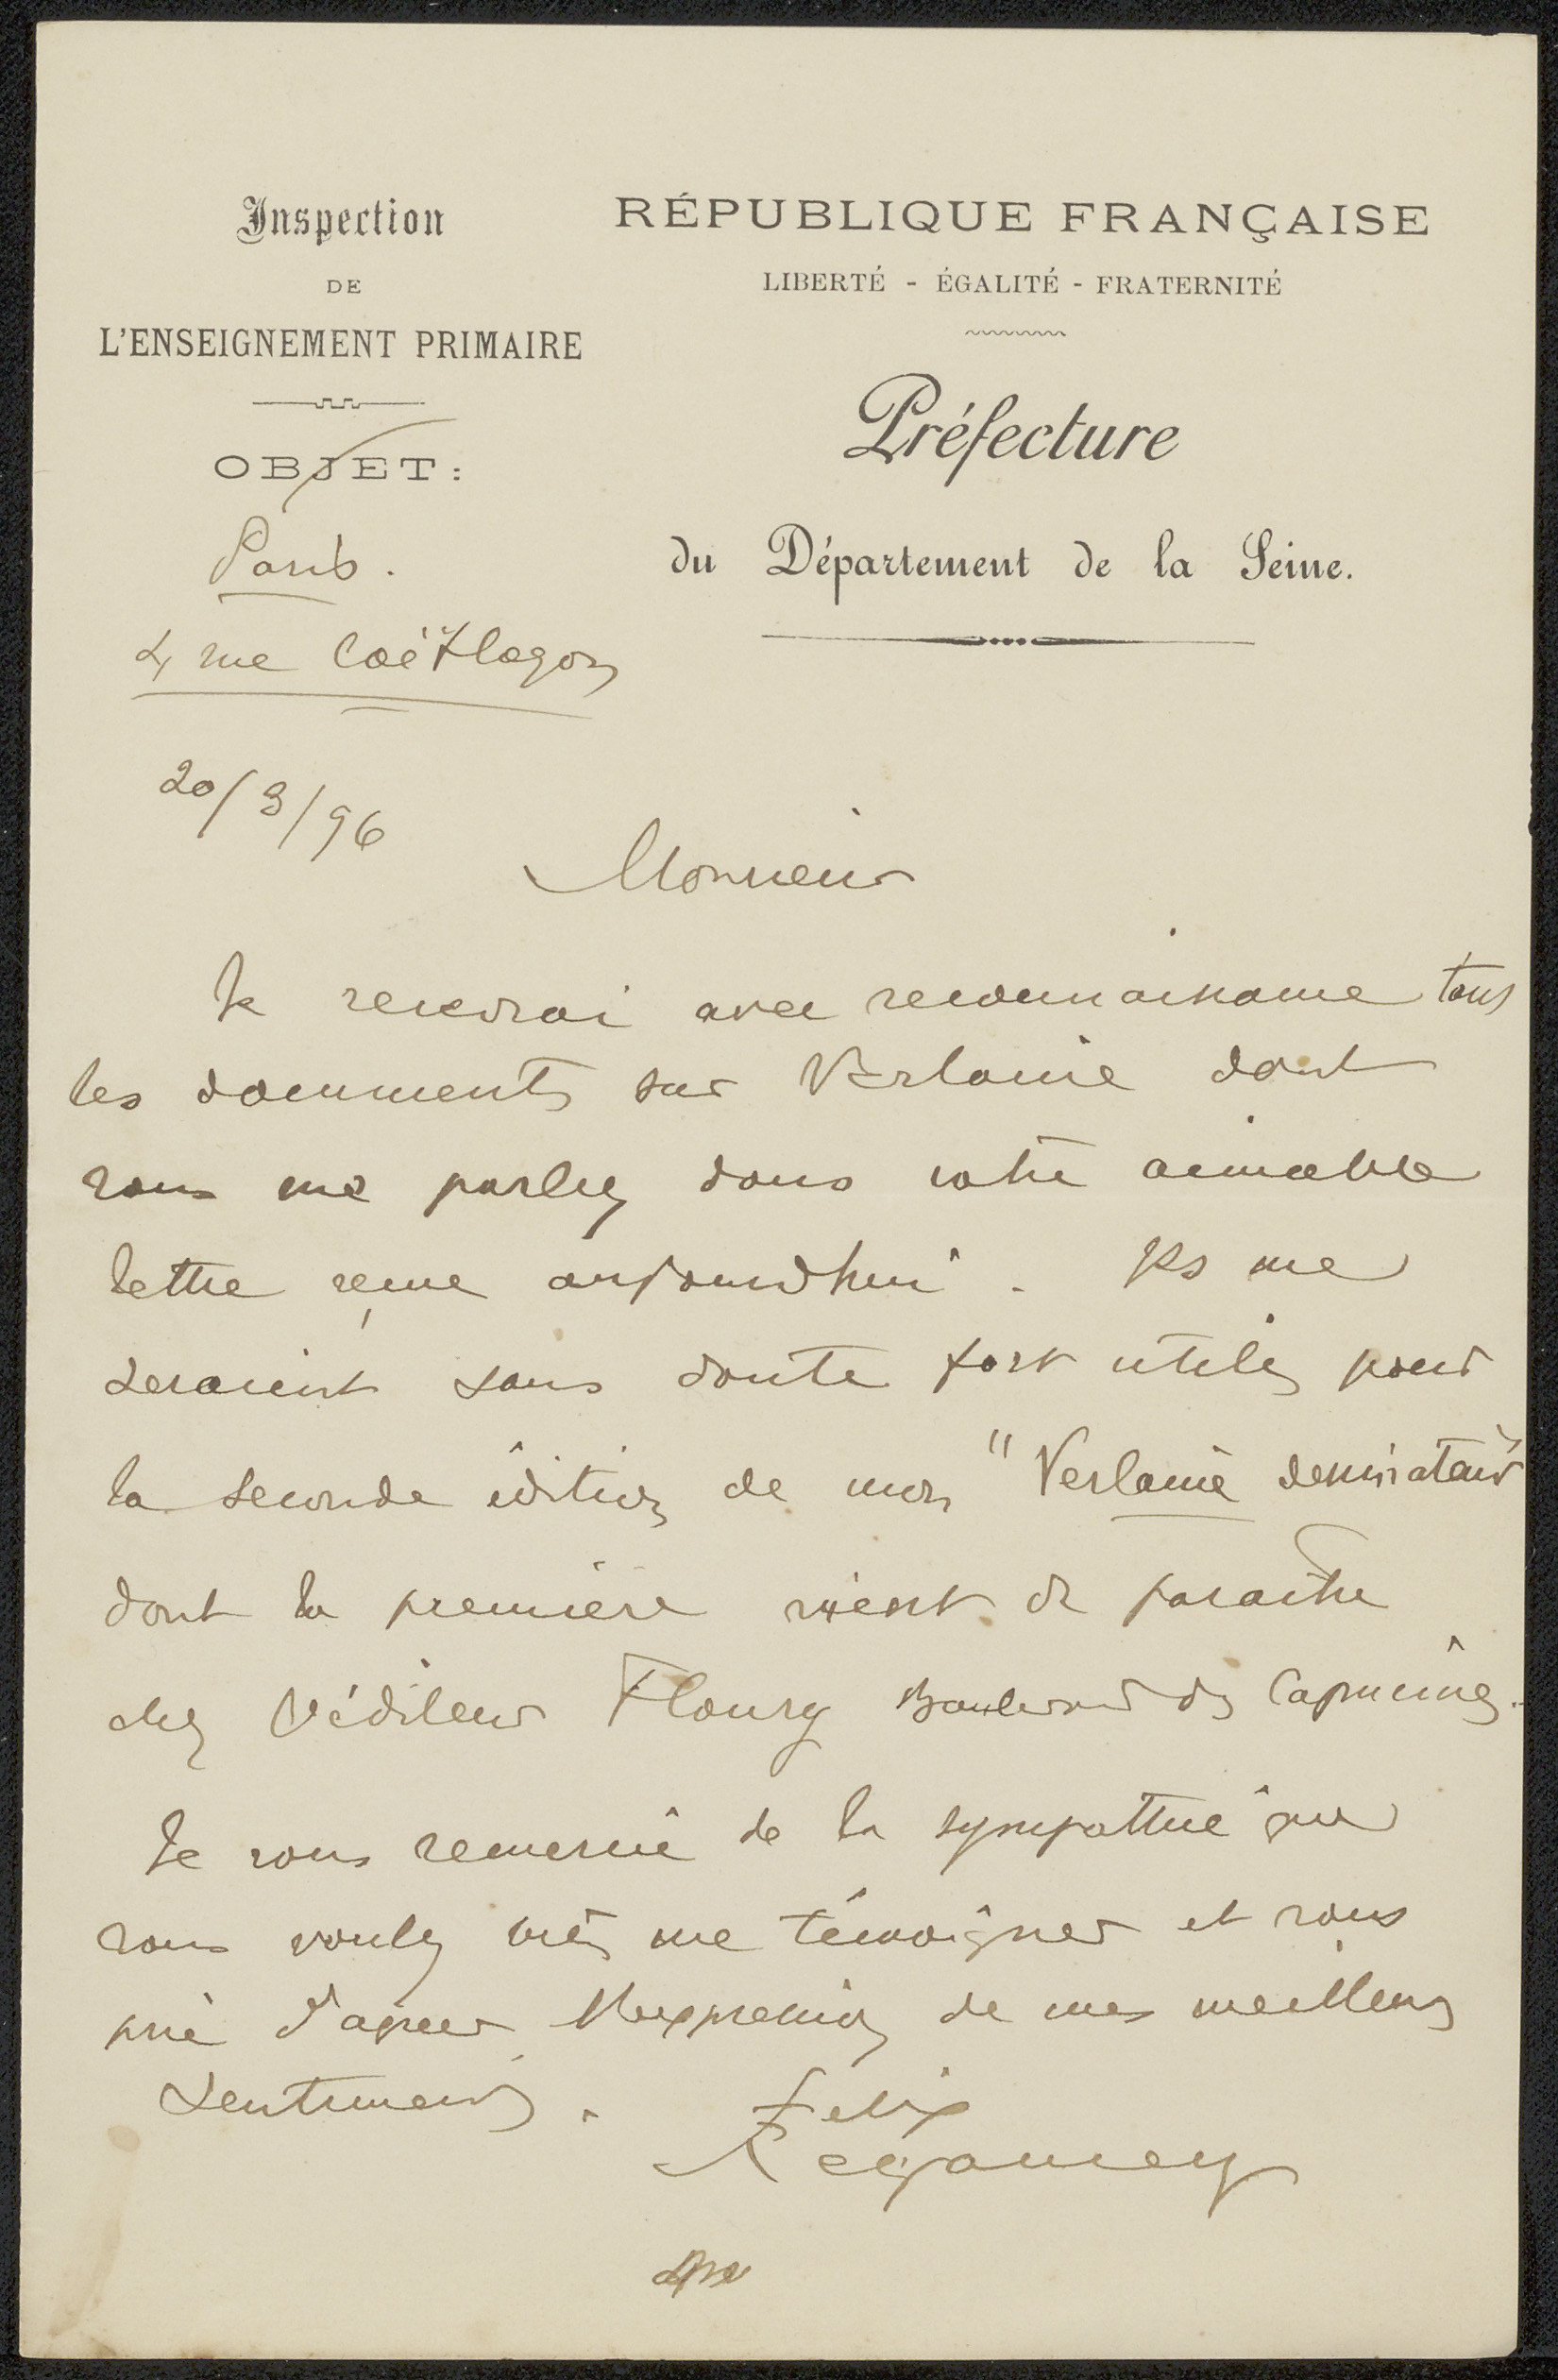 Inspection
DE
L'ENSEIGNEMENT PRIMAIRE
OBJET :
Paris.
4 rue Coëtlogon
20/3/96
RÉPUBLIQUE FRANÇAISE
LIBERTÉ - ÉGALITÉ - FRATERNITÉ
Préfecture
du Département de la Seine.
Monsieur
Je recevrai avec reconnaissance tous
les documents sur Verlaine dont
vous me parlez dans votre aimable
lettre reçue aujourdhui. Ils me
seraient sans doute fort utiles pour
la seconde édition de mon "Verlaine dessinateur"
dont la première vient de paraître
chez l'éditeur Floury Boulevard des Capucines.
Je vous remercie de la sympathie que
vous voulez bien me témoigner et vous
prie d'agréer l'expression de mes meilleurs
sentiments.
Felix
Regamey